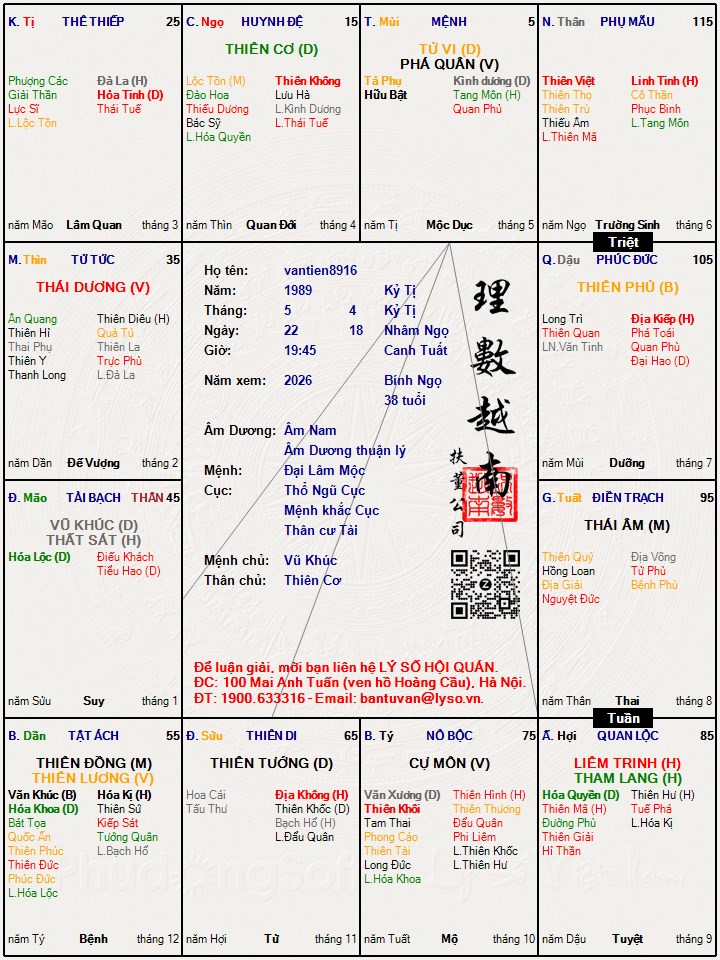 K. Tị THÊ THIẾP 25
Phượng Các Đà La (H)
Giải Thần Hỏa Tinh (D)
Lực Sĩ Thái Tuế
L.Lộc Tồn
năm Mão Lâm Quan tháng 3
C. Ngọ HUYNH ĐỆ 15
THIÊN CƠ (D)
Lộc Tồn (M) Thiên Không
Đào Hoa Lưu Hà
Thiếu Dương L.Kình Dương
Bác Sỹ L.Thái Tuế
L.Hóa Quyền
năm Thìn Quan Đới tháng 4
T. Mùi MỆNH 5
TỬ VI (D)
PHÁ QUÂN (V)
Tả Phụ Kình dương (D)
Hữu Bật Tang Môn (H)
Quan Phủ
năm Tị Mộc Dục tháng 5
N. Thân PHỤ MẪU 115
Thiên Việt Linh Tinh (H)
Thiên Thọ Cô Thần
Thiên Trù Phục Binh
Thiếu Âm L.Tang Môn
L.Thiên Mã
năm Ngọ Trường Sinh tháng 6
Triệt
M. Thìn TỬ TỨC 35
THÁI DƯƠNG (V)
Ân Quang Thiên Diêu (H)
Thiên Hỉ Quả Tú
Thai Phụ Thiên La
Thiên Y Trực Phù
Thanh Long L.Đà La
năm Dần Đế Vượng tháng 2
Họ tên: vantien8916
Năm: 1989 Kỷ Tị
Tháng: 5 4 Kỷ Tị
Ngày: 22 18 Nhâm Ngọ
Giờ: 19:45 Canh Tuất
Năm xem: 2026 Bính Ngọ
38 tuổi
Âm Dương: Âm Nam
Âm Dương thuận lý
Mệnh: Đại Lâm Mộc
Cục: Thổ Ngũ Cục
Mệnh khắc Cục
Thân cư Tài
Mệnh chủ: Vũ Khúc
Thân chủ: Thiên Cơ
理數越南
扶董公司
Z
Để luận giải, mời bạn liên hệ LÝ SỐ HỘI QUÁN.
ĐC: 100 Mai Anh Tuấn (ven hồ Hoàng Cầu), Hà Nội.
ĐT: 1900.633316 - Email: bantuvan@lyso.vn.
Q. Dậu PHÚC ĐỨC 105
THIÊN PHỦ (B)
Long Trì Địa Kiếp (H)
Thiên Quan Phá Toái
LN.Văn Tinh Quan Phù
Đại Hao (D)
năm Mùi Dưỡng tháng 7
Đ. Mão TÀI BẠCH THÂN 45
VŨ KHÚC (D)
THẤT SÁT (H)
Hóa Lộc (D) Điếu Khách
Tiểu Hao (D)
năm Sửu Suy tháng 1
G. Tuất ĐIỀN TRẠCH 95
THÁI ÂM (M)
Thiên Quý Địa Võng
Hồng Loan Tử Phù
Địa Giải Bệnh Phù
Nguyệt Đức
năm Thân Thai tháng 8
Tuần
B. Dần TẬT ÁCH 55
THIÊN ĐỒNG (M)
THIÊN LƯƠNG (V)
Văn Khúc (B) Hóa Kị (H)
Hóa Khoa (D) Thiên Sứ
Bát Tọa Kiếp Sát
Quốc Ấn Tướng Quân
Thiên Phúc L.Bạch Hổ
Thiên Đức
Phúc Đức
L.Hóa Lộc
năm Tý Bệnh tháng 12
Đ. Sửu THIÊN DI 65
THIÊN TƯỚNG (D)
Hoa Cái Địa Không (H)
Tấu Thư Thiên Khốc (D)
Bạch Hổ (H)
L.Đẩu Quân
năm Hợi Tử tháng 11
B. Tý NÔ BỘC 75
CỰ MÔN (V)
Văn Xương (D) Thiên Hình (H)
Thiên Khôi Thiên Thương
Tam Thai Đẩu Quân
Phong Cáo Phi Liêm
Thiên Tài L.Thiên Khốc
Long Đức L.Thiên Hư
L.Hóa Khoa
năm Tuất Mộ tháng 10
Ấ. Hợi QUAN LỘC 85
LIÊM TRINH (H)
THAM LANG (H)
Hóa Quyền (D) Thiên Hư (H)
Thiên Mã (H) Tuế Phá
Đường Phù L.Hóa Kị
Thiên Giải
Hỉ Thần
năm Dậu Tuyệt tháng 9